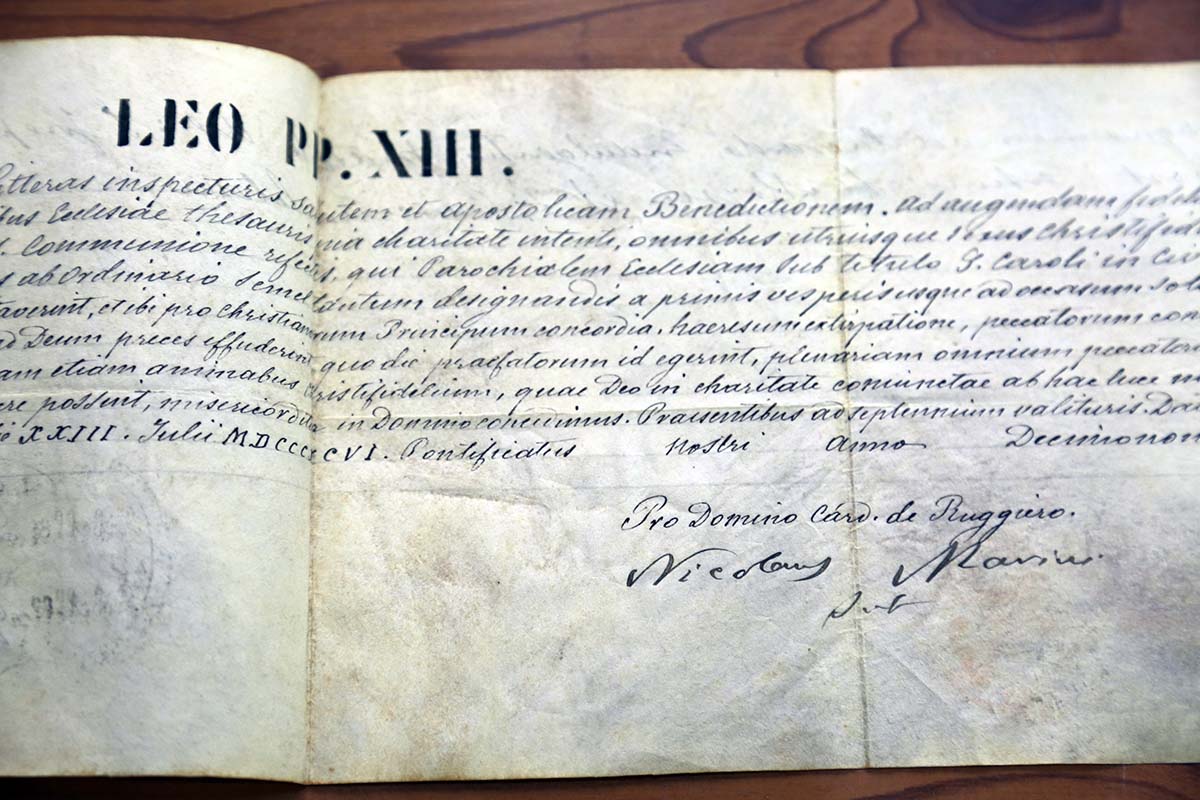 LEO PP. XIII.
litteras inspecturis salutem et Apostolicam Benedictionem. Ad augendam fideli
ibus Ecclesiae thesauris pia charitate intenti, omnibus utriusque sexus Christifideli
S. Communione refectis, qui Parochialem Ecclesiam sub titulo S. Caroli in Civ
ab Ordinario semel tantum designandis a primis vesperis usque ad occasum Sol
averint, et ibi pro Christianorum Principum concordia, haeresum extirpatione, peccatorum con
ad Deum preces effuderint quo die praefatorum id egerint, plenariam omnium peccatoru
am etiam animabus Christifidelium, quae Deo in charitate coniunctae ab hac luce m
ere possint, misericorditer in Domino concedimus. Praesentibus ad septennium valituris. Da
XXIII. Iulii MDCCCXCVI. Pontificatus Nostri Anno Decimonon
Pro Domino Card. de Ruggiero.
Nicolaus Marini